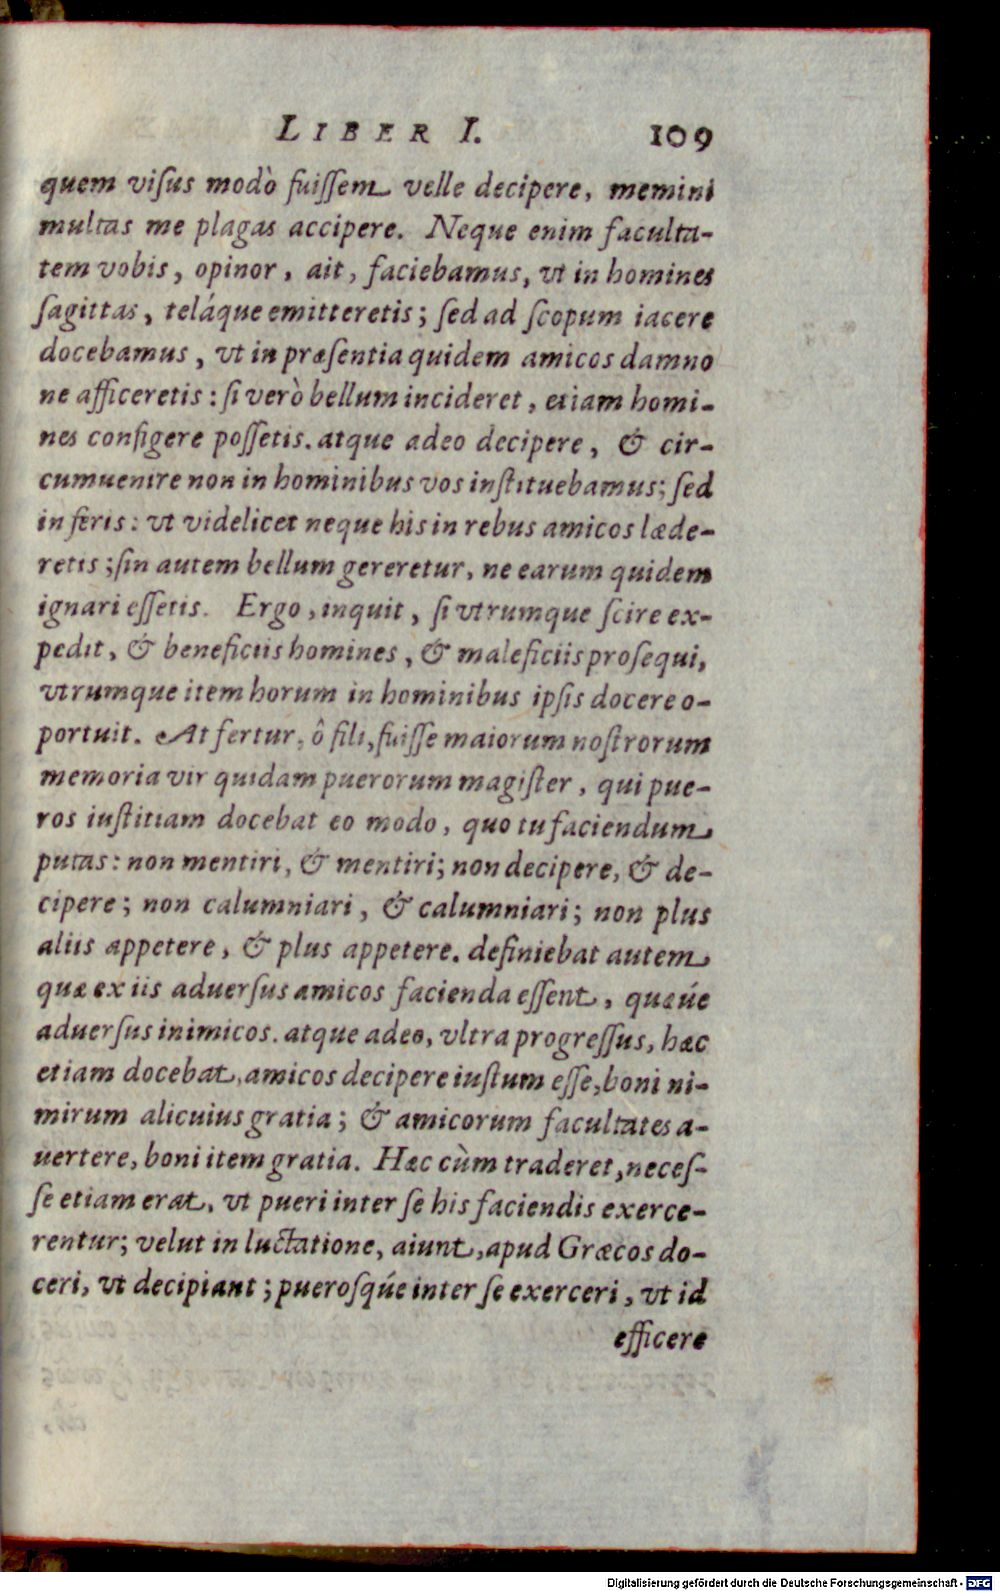 LIBER I. 109
quem visus modò fuissem velle decipere, memini
multas me plagas accipere. Neque enim faculta-
tem vobis, opinor, ait, faciebamus, vt in homines
sagittas, teláque emitteretis; sed ad scopum iacere
docebamus, vt in præsentia quidem amicos damno
ne afficeretis: si verò bellum incideret, etiam homi-
nes configere possetis. atque adeo decipere, & cir-
cumuenire non in hominibus vos instituebamus; sed
in feris: vt videlicet neque his in rebus amicos læde-
retis; sin autem bellum gereretur, ne earum quidem
ignari essetis. Ergo, inquit, si vtrumque scire ex-
pedit, & beneficiis homines, & maleficiis prosequi,
vtrumque item horum in hominibus ipsis docere o-
portuit. At fertur, ô fili, fuisse maiorum nostrorum
memoria vir quidam puerorum magister, qui pue-
ros iustitiam docebat eo modo, quo tu faciendum
putas: non mentiri, & mentiri; non decipere, & de-
cipere; non calumniari, & calumniari; non plus
aliis appetere, & plus appetere. definiebat autem
quæ ex iis aduersus amicos facienda essent, quæúe
aduersus inimicos. atque adeo, vltra progressus, hæc
etiam docebat, amicos decipere iustum esse, boni ni-
mirum alicuius gratia; & amicorum facultates a-
uertere, boni item gratia. Hæc cùm traderet, neces-
se etiam erat, vt pueri inter se his faciendis exerce-
rentur; velut in luctatione, aiunt, apud Græcos do-
ceri, vt decipiant; puerosqúe inter se exerceri, vt id
efficere
Digitalisierung gefördert durch die Deutsche Forschungsgemeinschaft - DFG